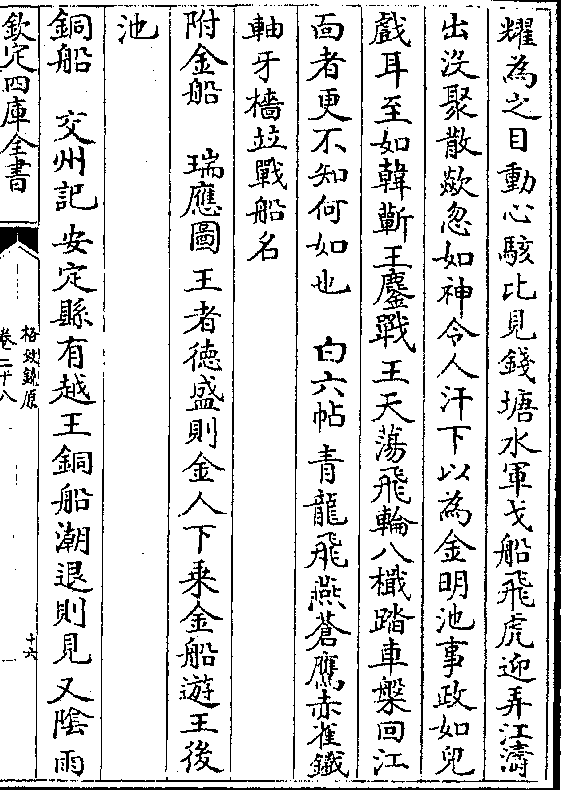 耀為之目動心駭比見錢塘水軍戈船飛虎迎弄江濤
出没聚散歘忽如神令人汗下以為金明池事政如兒
戲耳至如韓蘄王鏖戰王天蕩飛輪八檝踏車槃回江
面者更不知何如也　白六帖青龍飛燕蒼鷹赤雀鐵
軸牙檣竝戰船名
附金船　瑞應圖王者徳盛則金人下乗金船遊王後
池
銅船　交州記安定縣有越王銅船潮退則見又隂雨
欽定四庫全書
格致鏡原
卷二十八
十六